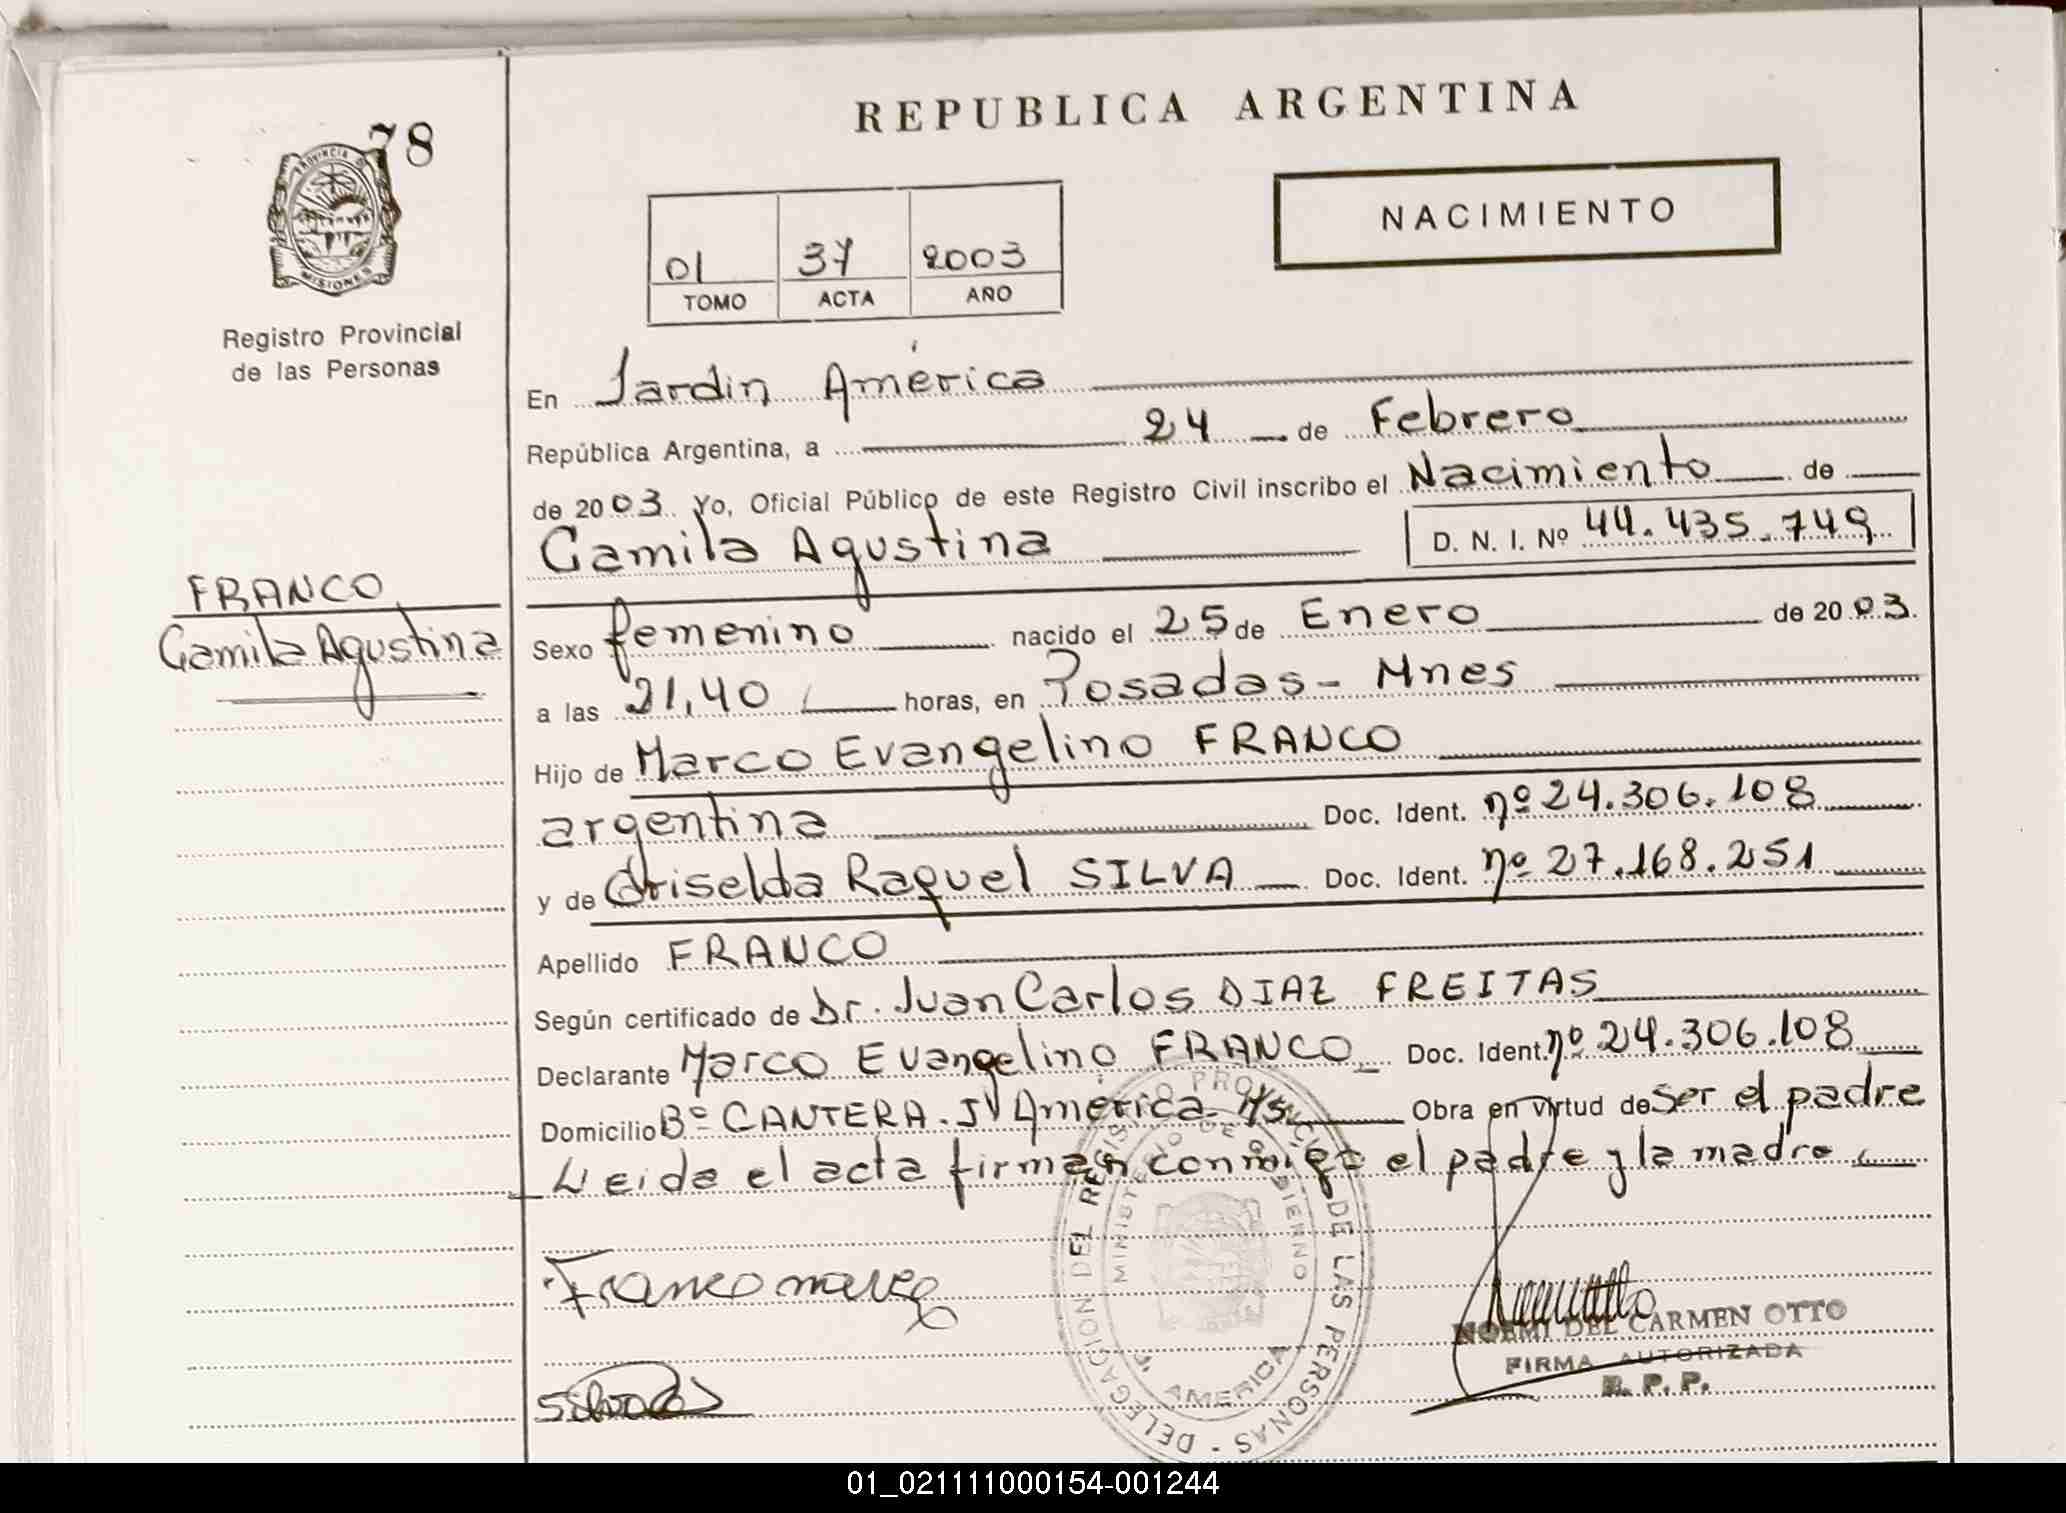 78
REPUBLICA ARGENTINA
PROVINCIA DE
MISIONES
Registro Provincial
de las Personas
NACIMIENTO
01 37 2003
TOMO ACTA AÑO
En Jardin América
República Argentina, a 24 de Febrero
de 2003. Yo, Oficial Público de este Registro Civil inscribo el Nacimiento de
Camila Agustina D. N. I. Nº 44.435.749
FRANCO
Camila Agustina
Sexo femenino nacido el 25 de Enero de 2003.
a las 21,40 horas, en Posadas - Mnes
Hijo de Marco Evangelino FRANCO
argentina Doc. Ident. nº 24.306.108
y de Griselda Raquel SILVA Doc. Ident. nº 27.168.251
Apellido FRANCO
Según certificado de Dr. Juan Carlos DIAZ FREITAS
Declarante Marco Evangelino FRANCO Doc. Ident. nº 24.306.108
Domicilio Bº CANTERA. Jº América. Ms. Obra en virtud de ser el padre
Leida el acta firman conmigo el padre y la madre
Franco marco
Silva
DELEGACION DEL REGISTRO PROVINCIAL DE LAS PERSONAS -
MINISTERIO DE GOBIERNO
J. AMERICA
NOEMI DEL CARMEN OTTO
FIRMA AUTORIZADA
R. P. P.
01_021111000154-001244